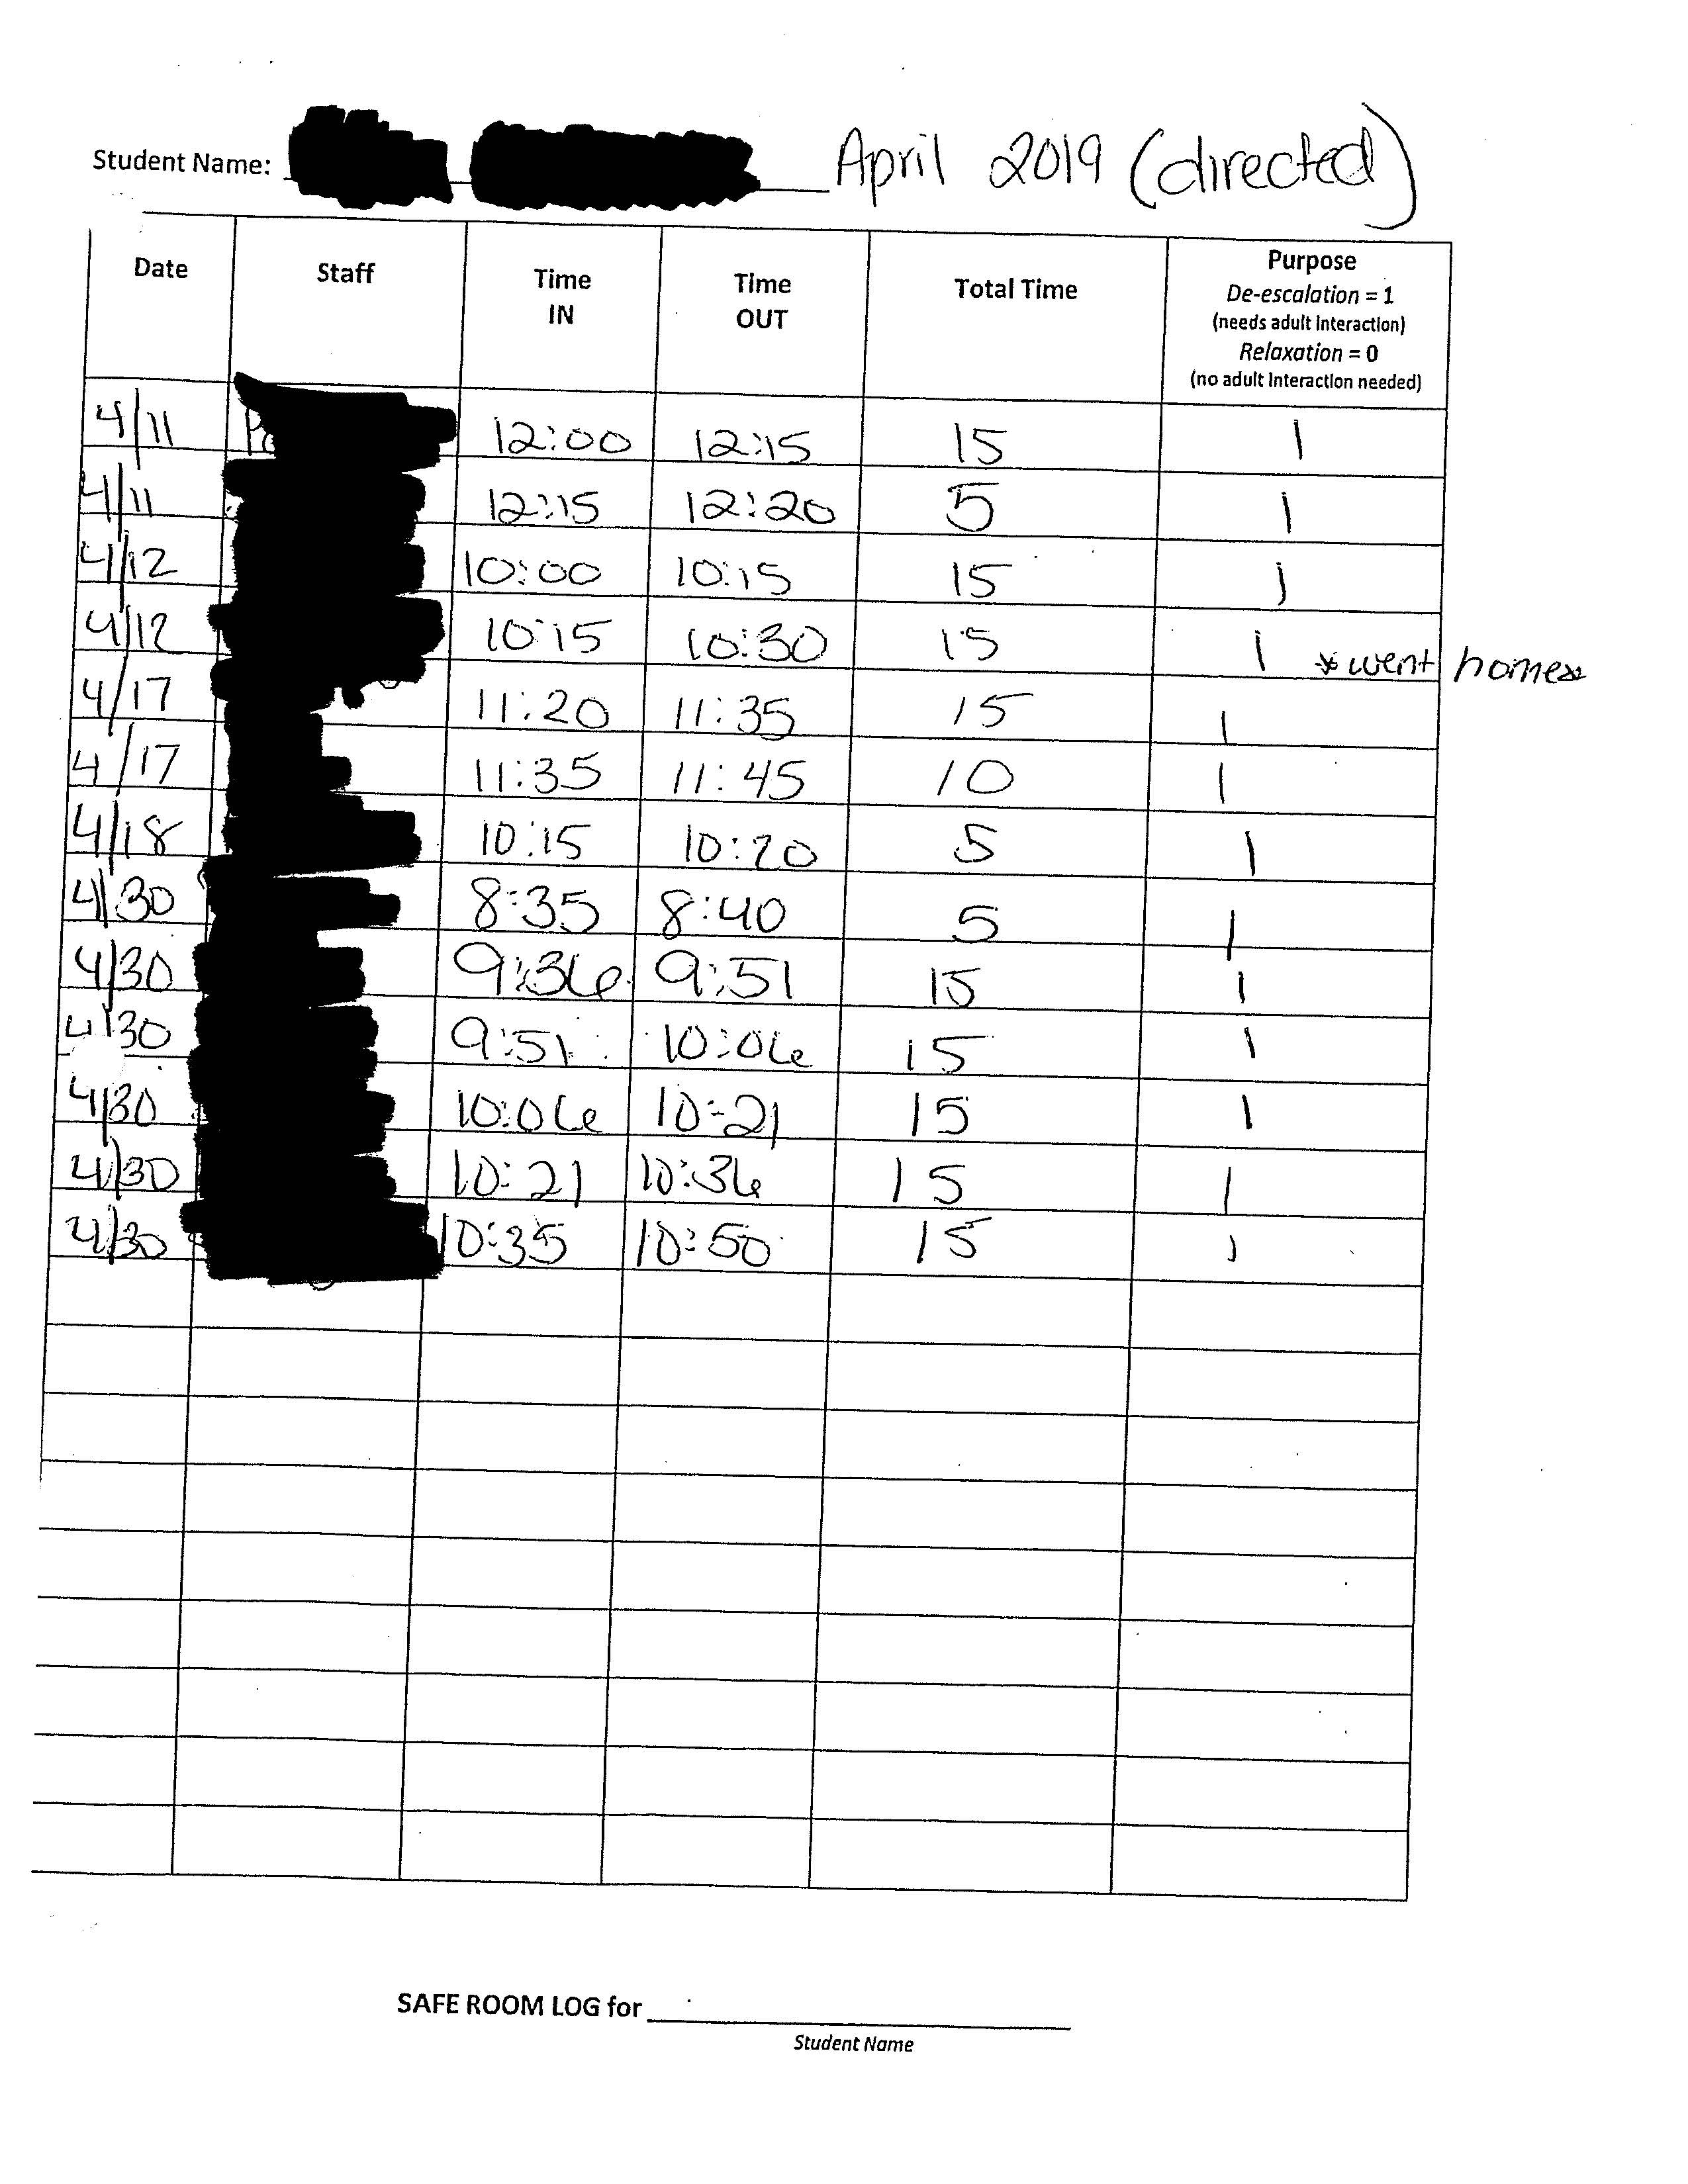 Student Name: April 2019 (directed)
Date Staff Time IN Time OUT Total Time Purpose
De-escalation = 1
(needs adult interaction)
Relaxation = 0
(no adult interaction needed)
4/11 12:00 12:15 15 1
4/11 12:15 12:20 5 1
4/12 10:00 10:15 15 1
4/12 10:15 10:30 15 1 *went home*
4/17 11:20 11:35 15 1
4/17 11:35 11:45 10 1
4/18 10:15 10:20 5 1
4/30 8:35 8:40 5 1
4/30 9:36 9:51 15 1
4/30 9:51 10:06 15 1
4/30 10:06 10:21 15 1
4/30 10:21 10:36 15 1
4/30 10:35 10:50 15 1
SAFE ROOM LOG for
Student Name